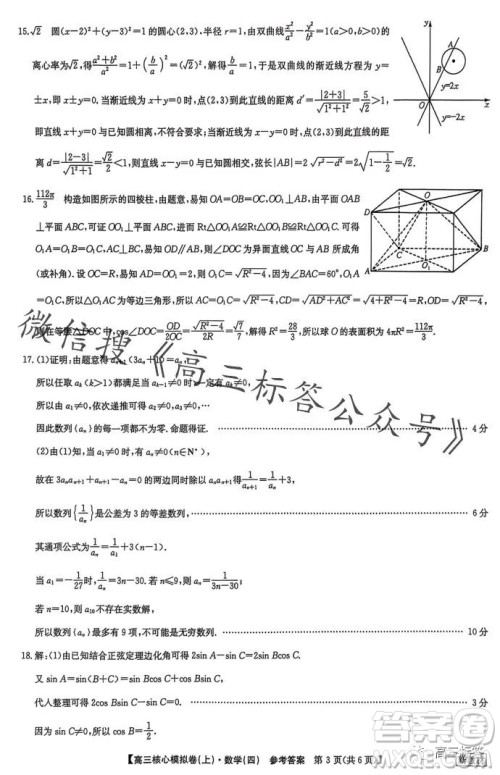 15.√2　圆(x−2)²+(y−3)²=1的圆心(2,3),半径r=1,由双曲线x²/a²−y²/b²=1(a>0,b>0)的
离心率为√2,得(a²+b²)/a²=1+(b/a)²=(√2)²,解得b/a=1,于是双曲线的渐近线方程为y=
±x,即x±y=0.当渐近线为x+y=0时,点(2,3)到此直线的距离d′=|2+3|/√(1²+1²)=5/√2>1,
即直线x+y=0与已知圆相离,不符合要求;当渐近线为x−y=0时,点(2,3)到此直线的距
离d=|2−3|/√(1²+1)=√2/2<1,则直线x−y=0与已知圆相交,弦长|AB|=2√(r²−d²)=2√(1−1/2)=√2.
y
A
B
y=2x
O
x
y=−2x
16.112π/3　构造如图所示的四棱柱,由题意,易知OA=OB=OC,OO₁⊥AB,由于平面OAB
⊥平面ABC,可证OO₁⊥平面ABC,进而Rt△OO₁A≌Rt△OO₁B≌Rt△OO₁C.可得
O₁A=O₁B=O₁C,AC⊥BC,易知OD∥AB,则∠DOC为异面直线OC与AB所成角
(或补角).设OC=R,易知AD=OO₁=2,则O₁C=√(R²−4),因为∠BAC=60°,O₁A
=O₁C,所以△O₁AC为等边三角形,所以AC=√(R²−4),CD=√(AD²+AC²)=√(4+R²−4)=R,
所以在等腰△DOC中,cos∠DOC=(OD/2)/OC=√(R²−4)/2R=√7/7,解得R²=28/3,所以球O的表面积为4πR²=112π/3.
O
D
C
B
O₁
A
17.(1)证明:由题意得aₙ₊₁(3aₙ+1)=aₙ,
所以任取aₖ(k>1)都满足当aₖ₋₁≠0时一定有aₖ≠0,
所以由a₁≠0,依次递推可得a₂≠0,…,aₙ≠0,
因此数列{aₙ}的每一项都不为零.命题得证. 4分
(2)由(1)知,当a₁≠0时,有aₙ≠0(n∈N*),
故在3aₙaₙ₊₁+aₙ₊₁−aₙ=0的两边同时除以aₙaₙ₊₁得1/aₙ₊₁=1/aₙ+3,
所以数列{1/aₙ}是公差为3的等差数列. 6分
其通项公式为1/aₙ=1/a₁+3(n−1).
当a₁=−1/27时,1/aₙ=3n−30.若n≤9,则aₙ=1/(3n−30);
若n=10,则a₁₀不存在实数解.
所以数列{aₙ}最多有9项,不可能是无穷数列. 10分
18.解:(1)由已知结合正弦定理边化角可得2sin A−sin C=2sin Bcos C.
又sin A=sin(B+C)=sin Bcos C+cos Bsin C,
代入整理可得2cos Bsin C−sin C=0. 3分
因为sin C≠0,所以cos B=1/2.
【高三核心模拟卷(上)·数学(四)　参考答案　第3页(共6页)】
微信搜《高三标答公众号》
答案圈
高三标答